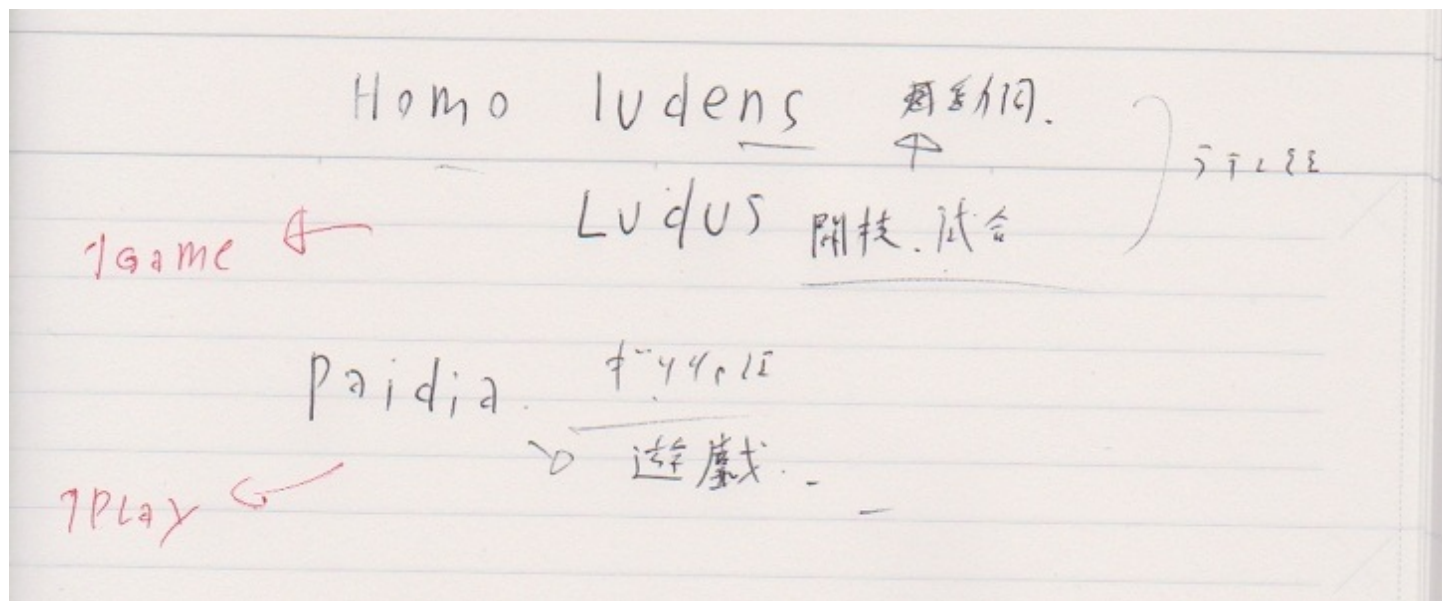 Homo ludens 動詞.
ラテン語
Ludus 闘技. 試合
Game
Paidia. ギリシャ語
遊戯.
Play